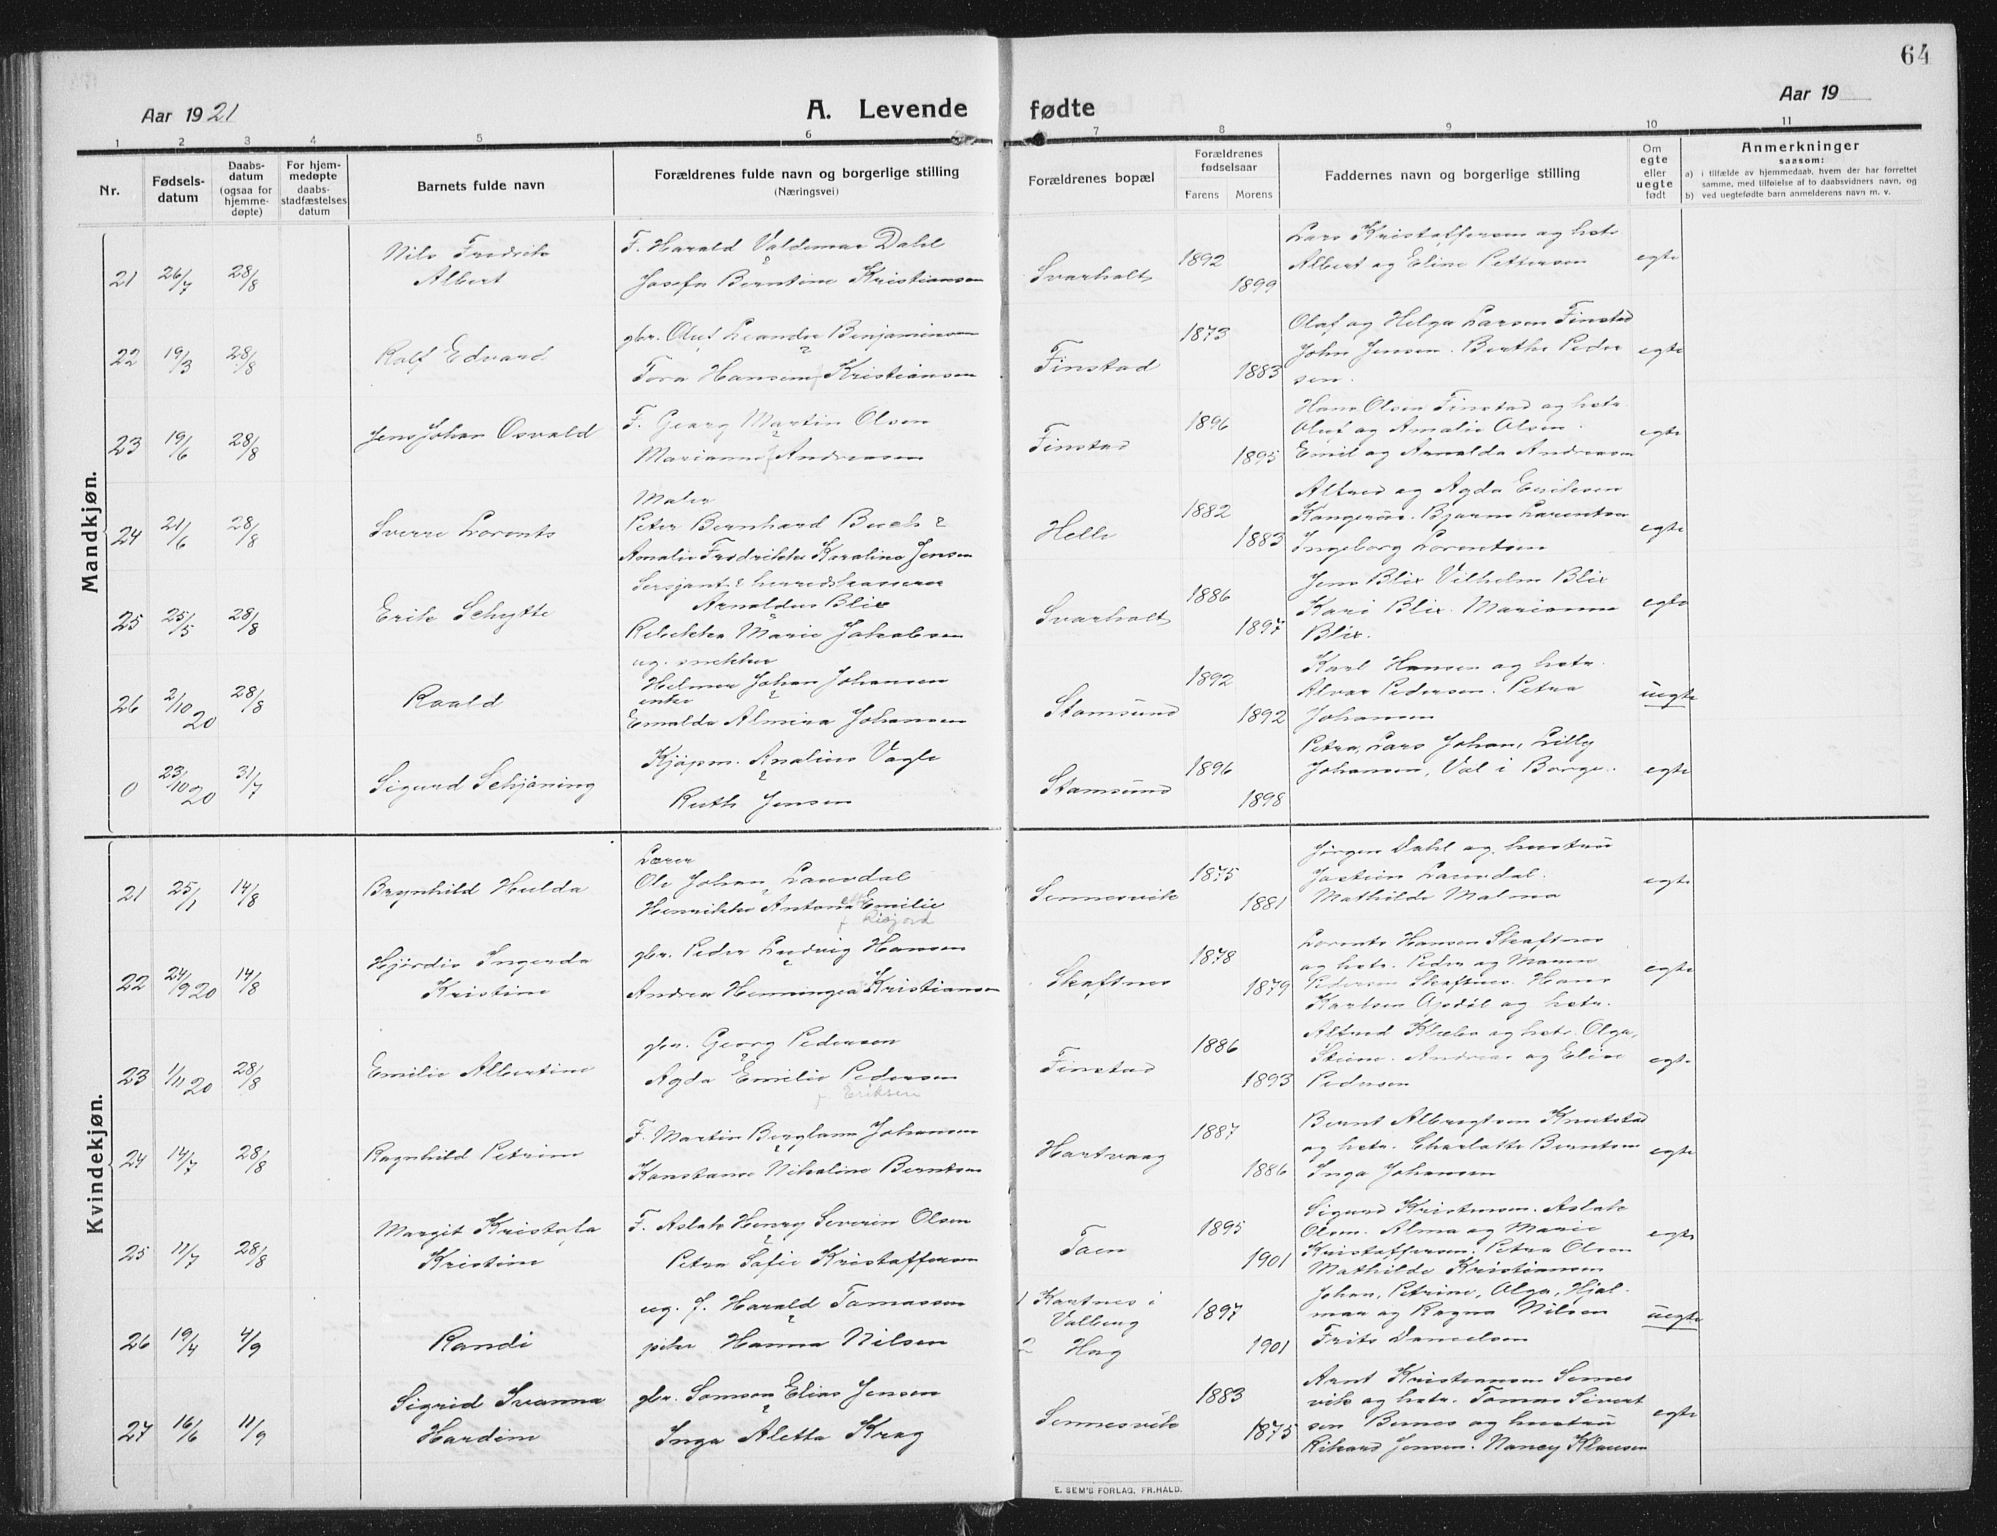 64
Aar 1921
A. Levende fødte
Aar 19
1 2 3 4 5 6 7 8 9 10 11
Nr.
Fødsels-
datum
Daabs-
datum
(ogsaa for
hjemme-
døpte)
For hjem-
medøpte
daabs-
stadfæstelses
datum
Barnets fulde navn
Forældrenes fulde navn og borgerlige stilling
(Næringsvei)
Forældrenes bopæl
Forældrenes
fødselsaar
Farens Morens
Faddernes navn og borgerlige stilling
Om
egte
eller
uegte
født
Anmerkninger
saasom:
a) i tilfælde av hjemmedaab, hvem der har forrettet
samme, med tilføielse af to daabsvidners navn, og
b) ved uegtefødte barn anmelderens navn m. v.
Mandkjøn.
21 26/7 28/8
Nils Fredrik
Albert
F. Harald Valdemar Dahl
&
Josefa Berntine Kristiansen
Svarholt
1892
1899
Lars Kristoffersen og hstr.
Albert og Eline Pettersen
egte
22 19/3 28/8
Rolf Edvard
gbr. Oluf Leander Benjaminsen
&
Tora Hansine f. Kristiansen
Finstad
1873
1883
Olaf og Helga Larsen Finstad
John Jensen. Berthe Peder
sen.
egte
23 19/6 28/8
Jens Johan Osvald
F. Georg Martin Olsen
&
Marianne f. Andreasen
Finstad
1896
1895
Hans Olsen Finstad og hstr.
Oluf og Amalie Olsen.
Emil og Arnolda Andreasen
egte
24 21/6 28/8
Sverre Lorents
Maler
Peter Bernhard Buch &
Amalie Fredrikke Karoline Jensen
Helle
1882
1883
Alfred og Agda Eriksen
Bjarne Lorentsen
Ingeborg Lorentsen
egte
25 25/5 28/8
Erik Schytte
Sersjant & herredskasserer
Arnoldus Blix
&
Rebekka Marie Jakobsen
Svarholt
1886
1897
Jens Blix Vilhelm Blix
Kari Blix. Marianne
Blix.
egte
26 2/10 20 28/8
Roald
ug. snekker
Helmer Johan Johansen
enke &
Emalda Almira Johansen
Stamsund
1892
1892
Karl Hansen og hstr.
Alvar Pedersen. Petra
Johansen
uegte
0 23/10 20 31/7
Sigurd Schjøning
Kjøpm. Analius Vagle
&
Ruth Jensen
Stamsund
1896
1898
Petra, Lars Johan, Lilly
Johansen, Val i Borge.
egte
Kvindekjøn.
21 25/1 14/8
Brynhild Hulda
Lærer
Ole Johan Laundal
&
Henrikke Antona Emilie
f. Risjord
Sennesvik
1875
1881
Jørgen Dahl og hustru
Jostein Laundal.
Mathilde Malmo
egte
22 24/9 20 14/8
Hjørdis Ingerda
Kristine
gbr. Peder Ludvig Hansen
&
Andrea Henningea Kristiansen
Skaftnes
1878
1879
Lorents Hansen Skaftnes
og hstr. Peder og Maren
Pedersen Skaftnes. Hans
Karlsen Opdøl og hstr.
egte
23 1/11 20 28/8
Emilie Albertine
gbr. Georg Pedersen
&
Agda Emilie Pedersen
f. Eriksen
Finstad
1886
1893
Alfred Klæbo og hstr. Olga,
Steine. Andreas og Eline
Pedersen
egte
24 14/7 28/8
Ragnhild Petrine
F. Martin Berglann Johansen
&
Konstanse Nikoline Berntsen
Hartvaag
1887
1886
Bernt Albregtsen Knutstad
og hstr. Charlotte Berntsen
Inga Johansen
egte
25 11/7 28/8
Margit Kristofa
Kristine
F. Aslak Henry Severin Olsen
&
Petra Sofie Kristoffersen
Taen
1895
1901
Sigurd Kristensen. Aslak
Olsen. Alma og Marie
Kristoffersen. Petra Olsen
Mathilde Kristiansen
egte
26 19/4 4/9
Randi
ug. f. Harald Tomassen
&
pike Hanna Nilsen
1 Kartnes i
Valberg
2 Hag
1897
1901
Johan, Petrine, Olga, Hjal-
mar og Ragna Nilsen
Frits Danielsen
uegte
27 16/6 11/9
Sigrid Svanna
Hardine
gbr. Samson Elias Jensen
&
Inga Aletta Krog
Sennesvik
1883
1875
Arnt Kristiansen Sennes
vik og hstr. Tomas Sivert
sen Bernes og hustru
Rikard Jensen. Nancy Klausen
egte
E. SEM'S FORLAG, FR.HALD.